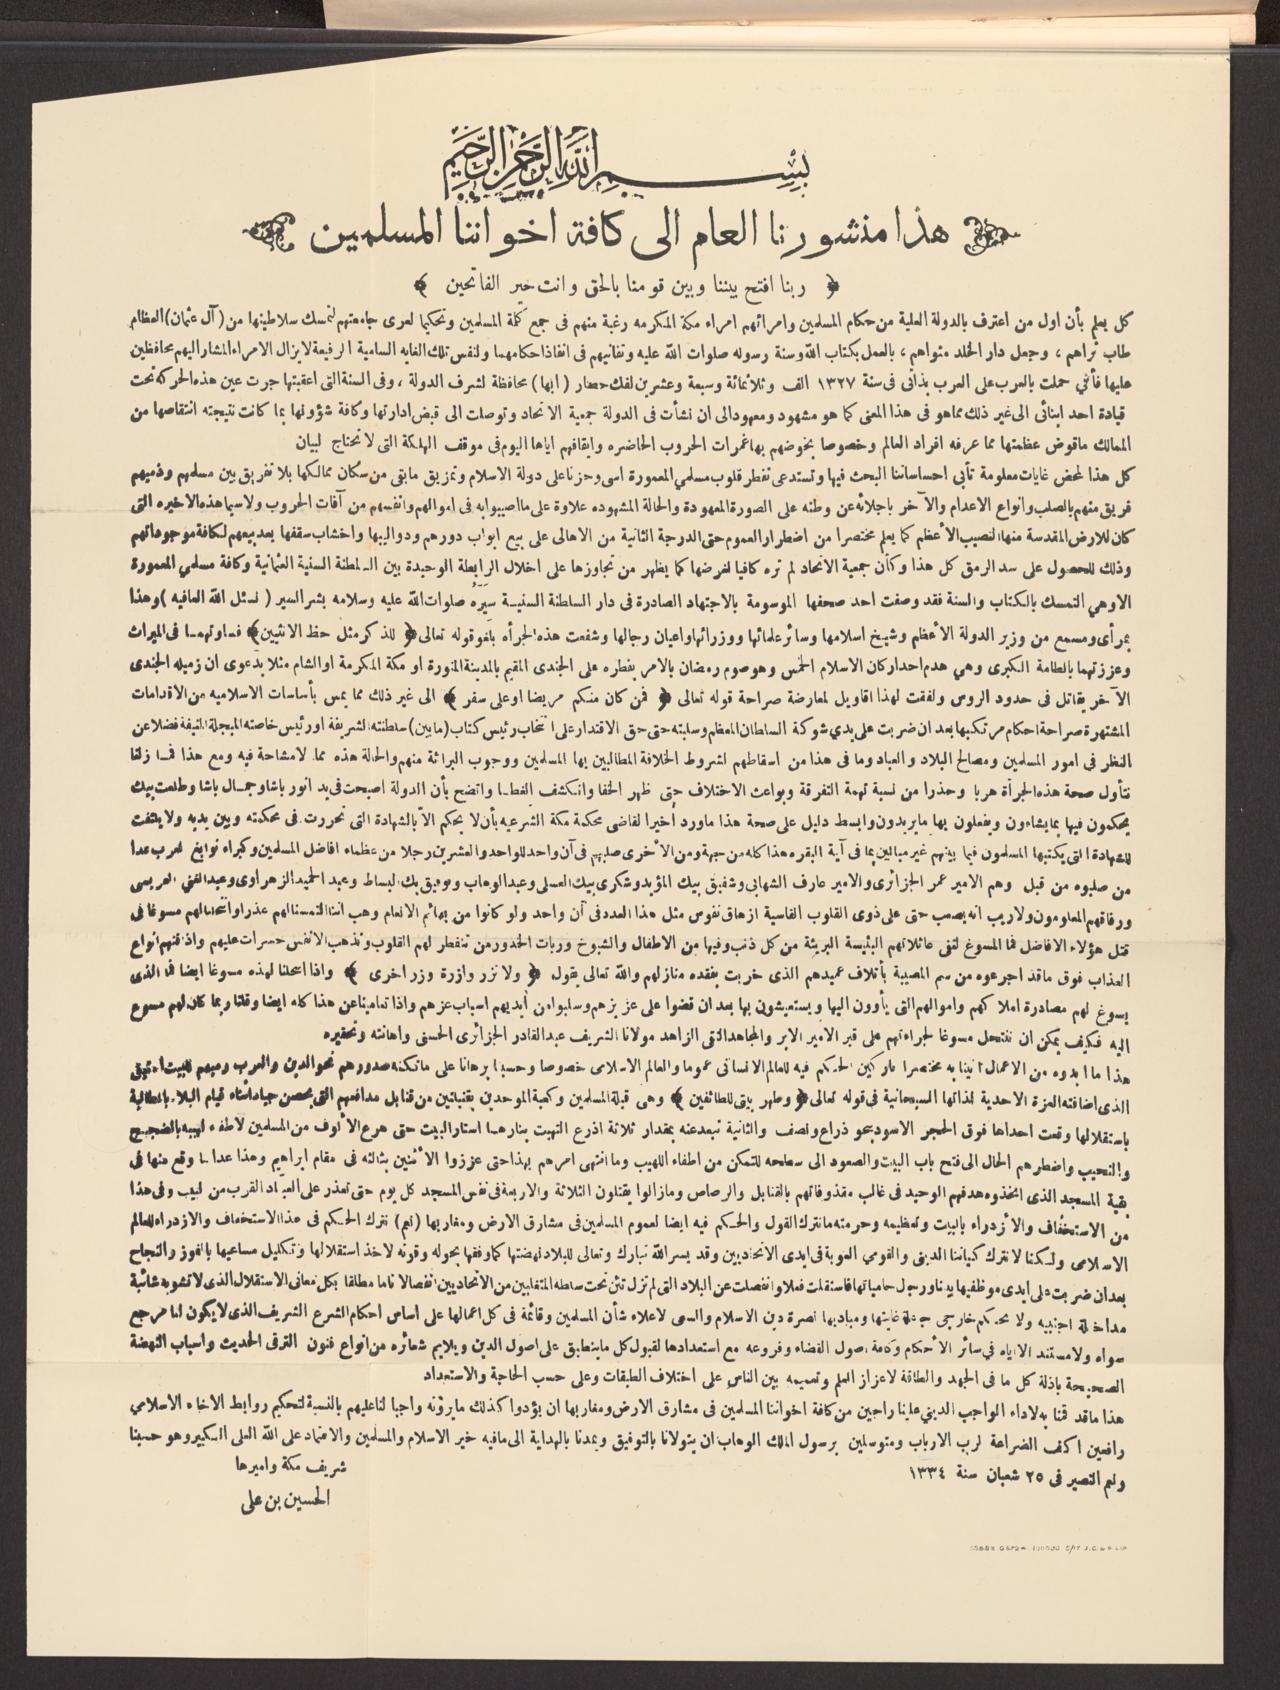 بسم الله الرحمن الرحيم
هذا منشورنا العام الى كافة اخواننا المسلمين
﴿ ربنا افتح بيننا وبين قومنا بالحق وانت خير الفاتحين ﴾
كل يعلم بأن اول من اعترف بالدولة العلية من حكام المسلمين وامرائهم امراء مكة المكرمه رغبة منهم فى جمع كلمة المسلمين وتحكيما لعرى جامعتهم لتمسك سلاطينها من (آل عثمان) العظام
طاب ثراهم ، وجعل دار الخلد مثواهم ، بالعمل بكتاب الله وسنة رسوله صلوات الله عليه وتفانيهم فى انفاذ احكامهما ولنفس تلك الغايه السامية الرفيعة لا يزال الامراء المشار اليهم محافظين
عليها فأنني حملت بالعرب على العرب بذاتى فى سنة ١٣٢٧ الف وثلاثمائة وسبعة وعشرين لفك حصار (ابها) محافظة لشرف الدولة ، وفى السنة التى اعقبتها جرت عين هذه الحركه تحت
قيادة احد ابنائى الى غير ذلك مما هو فى هذا المعنى كما هو مشهود ومعهود الى ان نشأت فى الدولة جمعية الاتحاد وتوصلت الى قبض ادارتها وكافة شؤونها بما كانت نتيجته انتقاصها من
الممالك ما قوض عظمتها مما عرفه افراد العالم وخصوصا بخوضهم بها غمرات الحروب الحاضره وايقافهم اياها اليوم فى موقف الهلكة التى لا تحتاج لبيان
كل هذا لمحض غايات معلومة تأبى احساساتنا البحث فيها وتستدعى تفطر قلوب مسلمي المعمورة اسى وحزنا على دولة الاسلام وتمزيق مابقى من سكان ممالكها بلا تفريق بين مسلمهم وذميهم
فريق منهم بالصلب وانواع الاعدام والآخر باجلائه عن وطنه على الصورة المعهودة والحالة المشهوده علاوة على ما اصيبوا به فى اموالهم وانفسهم من آفات الحروب ولا سيما هذه الاخيره التى
كان للارض المقدسة منها النصيب الأعظم كما يعلم مختصرا من اضطرار العموم حتى الدرجة الثانية من الاهالى على بيع ابواب دورهم ودواليبها واخشاب سقفها بعد بيعهم لكافة موجوداتهم
وذلك للحصول على سد الرمق كل هذا وكأن جمعية الاتحاد لم تره كافيا لغرضها كما يظهر من تجاوزها على اخلال الرابطة الوحيدة بين السلطنة السنية العثمانية وكافة مسلمي المعمورة
الاوهي التمسك بالكتاب والسنة فقد وصفت احد صحفها الموسومة بالاجتهاد الصادرة فى دار السلطنة السنية سيره صلوات الله عليه وسلامه بشر السير ( نسئل الله العافيه ) وهذا
بمرأى ومسمع من وزير الدولة الأعظم وشيخ اسلامها وسائر علمائها ووزرائها واعيان رجالها وشفعت هذه الجرأه بلغو قوله تعالى ﴿ للذكر مثل حظ الانثيين ﴾ فساوتهما فى الميراث
وعززتهما بالطامة الكبرى وهي هدم احد اركان الاسلام الخمس وهو صوم رمضان بالامر بفطره على الجندى المقيم بالمدينة المنورة او مكة المكرمة او الشام مثلا بدعوى ان زميله الجندى
الآخر يقاتل فى حدود الروس ولفقت لهذا اقاويل لمعارضة صراحة قوله تعالى ﴿ فمن كان منكم مريضا او على سفر ﴾ الى غير ذلك مما يمس بأساسات الاسلاميه من الاقدامات
المشتهرة صراحة احكام مرتكبها بعد ان ضربت على يدي شوكة السلطان المعظم وسلبته حتى حق الاقتدار على انتخاب رئيس كتاب (مابين) سلطنته الشريفة او رئيس خاصته المبجلة المنيفة فضلا عن
النظر فى امور المسلمين ومصالح البلاد والعباد وما فى هذا من اسقاطهم لشروط الخلافة المطالبين بها المسلمين ووجوب البرائة منهم والحالة هذه مما لا مشاحة فيه ومع هذا فما زلنا
نتأول صحة هذه الجرأة هربا وحذرا من نسبة تهمة التفرقة وبواعث الاختلاف حتى ظهر الخفا وانكشف الغطا واتضح بأن الدولة اصبحت فى يد انور باشا وجمال باشا وطلعت بيك
يحكمون فيها بما يشاءون ويفعلون بها ما يريدون وابسط دليل على صحة هذا ما ورد أخيرا لقاضى محكمة مكة الشرعيه بأن لا يحكم الا بالشهادة التى تحررت فى محكمته وبين يديه ولا يلتفت
للشهادة التى يكتبها المسلمون فيما بينهم غير مبالين بما فى آية البقره هذا كله من جهة ومن الأخرى صلبهم فى آن واحد للواحد والعشرين رجلا من عظماء افاضل المسلمين وكبراء نوابغ العرب عدا
من صلبوه من قبل وهم الامير عمر الجزائرى والامير عارف الشهابى وشفيق بيك المؤيد وشكري بيك العسلى وعبد الوهاب وتوفيق بك البساط وعبد الحميد الزهراوى وعبد الغنى العريسى
ورفاقهم المعلومون ولا ريب انه يصعب حتى على ذوى القلوب القاسية ازهاق نفوس مثل هذا العدد فى آن واحد ولو كانوا من بهائم الانعام وهب اننا التمسنا لهم عذرا وانتحلنا لهم مسوغا فى
قتل هؤلاء الافاضل فما المسوغ لنفى عائلاتهم البئيسة البريئة من كل ذنب وفيها من الاطفال والشيوخ وربات الخدور من تنفطر لهم القلوب وتذهب الانفس حسرات عليهم واذاقتهم انواع
العذاب فوق ما قد اجرعوه من سم المصيبة بأتلاف عميدهم الذى خربت بفقده منازلهم والله تعالى يقول ﴿ ولا تزر وازرة وزر اخرى ﴾ واذا انتحلنا لهذه مسوغا ايضا فما الذى
يسوغ لهم مصادرة املاكهم واموالهم التى يأوون اليها ويستعيشون بها بعد ان قضوا على عزيزهم وسلبوا من أيديهم اسباب عزهم واذا تعامينا عن هذا كله ايضا وقلنا ربما كان لهم مسوغ
اليه فكيف يمكن ان ننتحل مسوغا لجراءتهم على قبر الامير الابر والمجاهد التقى الزاهد مولانا الشريف عبد القادر الجزائرى الحسنى واهانته وتحقيره
هذا ما ابدوه من الاعمال أتينا به مختصرا تاركين الحكم فيه للعالم الانسانى عموما والعالم الاسلامى خصوصا وحسبنا برهانا على ما تكنه صدورهم نحو الدين والعرب رميهم للبيت العتيق
الذى اضافته العزة الاحدية لذاتها السبحانية فى قوله تعالى ﴿ وطهر بيتى للطائفين ﴾ وهى قبلة المسلمين وكعبة الموحدين بقنبلتين من قنابل مدافعهم التى بحصن جياد أثناء قيام البلاد بالمطالبة
باستقلالها وقعت احداها فوق الحجر الاسود بنحو ذراع ونصف والثانية تبعد عنه بمقدار ثلاثة اذرع التهبت بنارهما استار البيت حتى هرع الألوف من المسلمين لاطفاء لهيبه بالضجيج
والنحيب واضطرهم الحال الى فتح باب البيت والصعود الى سطحه للتمكن من اطفاء اللهيب وما انتهى امرهم بهذا حتى عززوا الأثنتين بثالثه فى مقام ابراهيم وهذا عدا ما وقع منها فى
بقية المسجد الذى اتخذوه هدفهم الوحيد فى غالب مقذوفاتهم بالقنابل والرصاص وما زالوا يقتلون الثلاثة والاربعة فى نفس المسجد كل يوم حتى تعذر على العباد القرب من البيت وفى هذا
من الاستخفاف والأزدراء بالبيت وتعظيمه وحرمته ما نترك القول والحكم فيه ايضا لعموم المسلمين فى مشارق الارض ومغاربها (نعم) نترك الحكم فى هذا الاستخفاف والازدراء للعالم
الاسلامى ولكننا لا نترك كياننا الدينى والقومي العوبة فى ايدى الاتحاديين وقد يسر الله تبارك وتعالى للبلاد نهضتها كما وفقها بحوله وقوته لاخذ استقلالها وتكليل مساعيها بالفوز والنجاح
بعد ان ضربت على ايدى موظفيها يدنا ورجل حامياتها فاستقلت فعلا وانفصلت عن البلاد التى لم تزل تئن تحت سلطه المتغلبين من الاتحاديين انفصالا تاما مطلقا بكل معانى الاستقلال الذى لا تشوبه شائبة
مداخلة اجنبيه ولا تحكم خارجى جاعلة غايتها ومباديها نصرة دين الاسلام والسعى لاعلاء شأن المسلمين وقائمة فى كل اعمالها على اساس احكام الشرع الشريف الذى لا يكون لنا مرجع
سواه ولا مستند الا اياه في سائر الأحكام وكافة اصول القضاء وفروعه مع استعدادها لقبول كل ما ينطبق على اصول الدين ويلايم شعائره من انواع فنون الترقى الحديث واسباب النهضة
الصحيحة باذلة كل ما فى الجهد والطاقة لاعزاز العلم وتعميمه بين الناس على اختلاف الطبقات وعلى حسب الحاجة والاستعداد
هذا ما قد قمنا به لاداء الواجب الدينى علينا راجين من كافة اخواننا المسلمين فى مشارق الارض ومغاربها ان يؤدوا كذلك ما يرونه واجبا لنا عليهم بالنسبة لتحكيم روابط الاخاء الاسلامى
رافعين اكف الضراعة لرب الارباب ومتوسلين برسول الملك الوهاب ان يتولانا بالتوفيق ويمدنا بالهداية الى ما فيه خير الاسلام والمسلمين والاعتماد على الله العلى الكبير وهو حسبنا
ونعم النصير فى ٢٥ شعبان سنة ١٣٣٤
شريف مكة واميرها
الحسين بن على